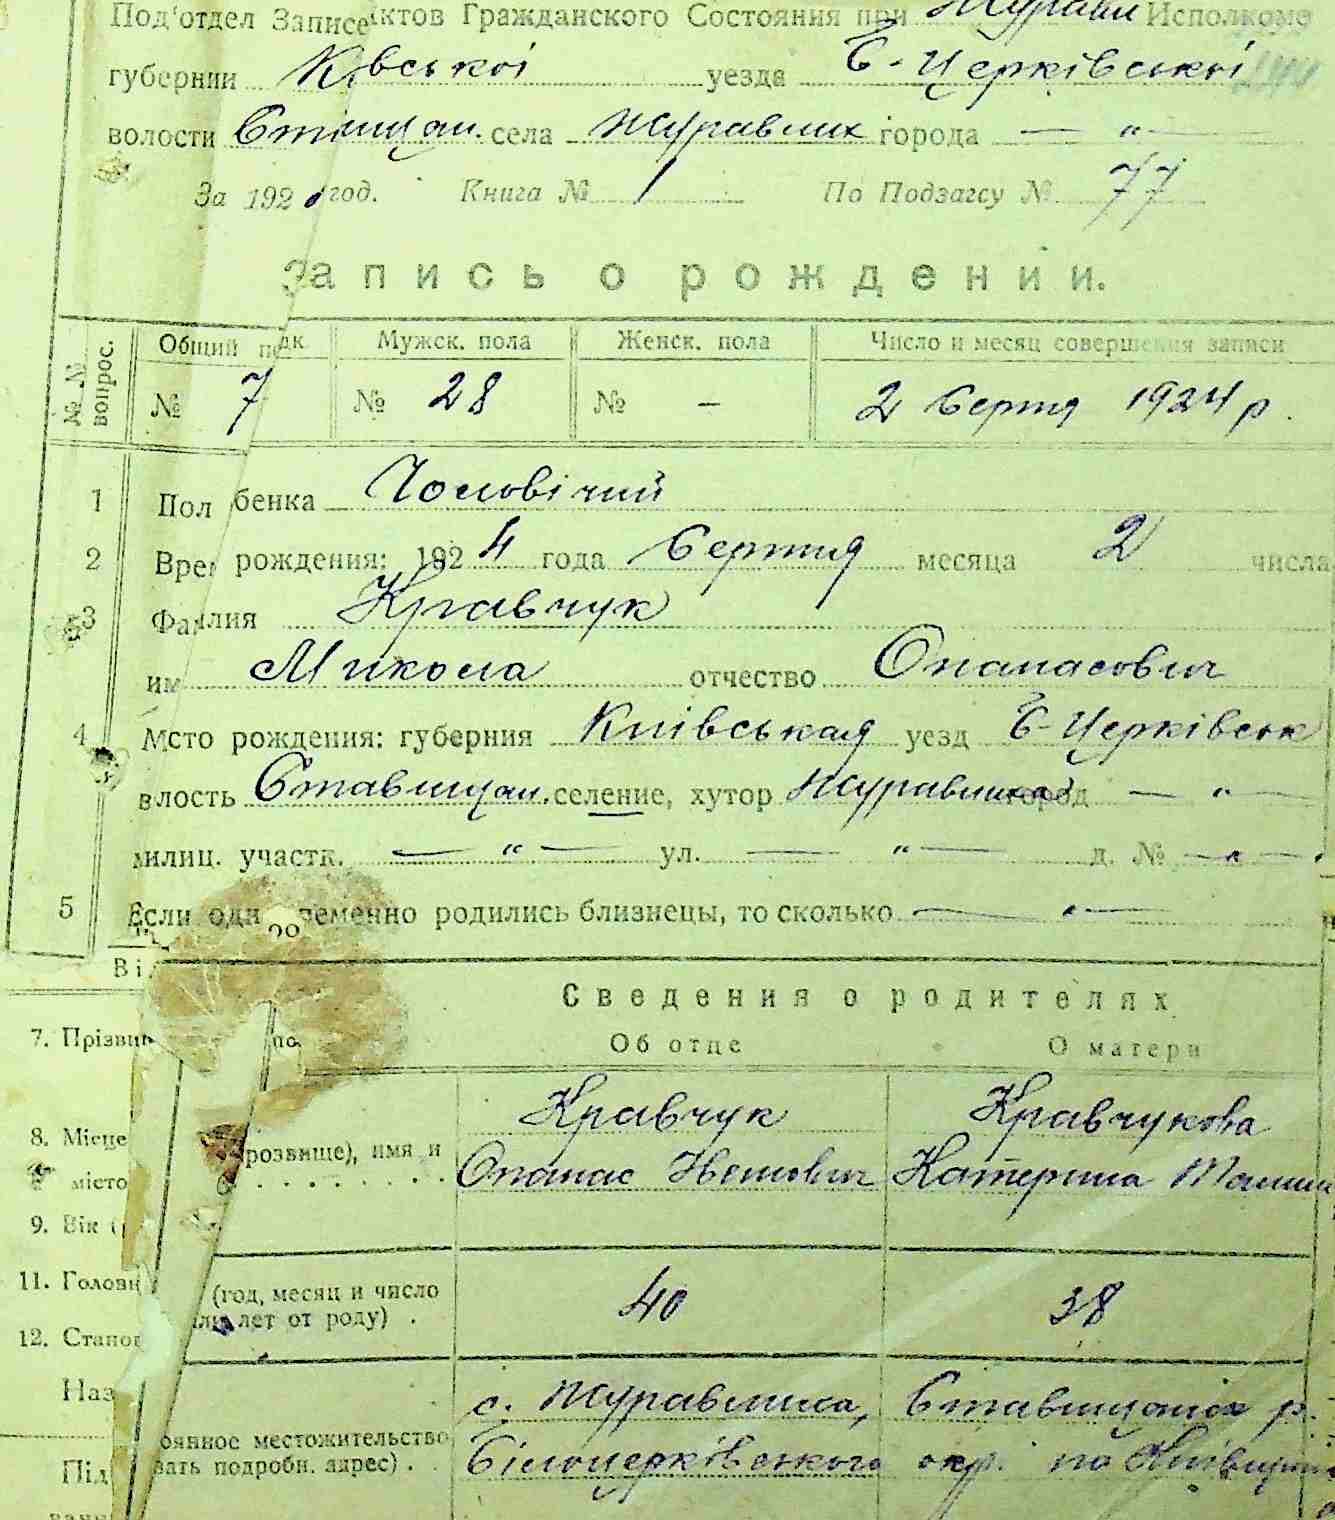 Под'отдел Записе Актов Гражданского Состояния при Журавл Исполкоме
губернии Київської уезда Б-Церківської
волости Ставищан. села Журавлих города — " —
За 192 год. Книга № 1 По Подзагсу № 77
Запись о рождении.
№ № вопрос. Общий по дк. Мужск. пола Женск. пола Число и месяц совершения записи
№ 7 № 28 № - 2 Серпня 1924 р.
1 Пол бенка Чоловічий
2 Вре рождения: 1924 года Серпня месяца 2 числа
3 Фамилия Кравчук
им Микола отчество Опанасович
4 Место рождения: губерния Київська уезд Б-Церківськ
влость Ставищан. селение, хутор Журавлиха город — " —
милиц. участк. — " — ул. — " — д. № — " —
5 Если одн ременно родились близнецы, то сколько — " —
Ві
Сведения о родителях
7. Прізви по Об отце О матери
Кравчук Кравчукова
8. Місце розвище), имя и Опанас Катерина
місто
9. Вік
11. Головн (год, месяц и число 40 38
или лет от роду) .
12. Станов
Наз с. Журавлиха, Ставищанськ р.
оянное местожительство
Під зать подробн. адрес) . . Білоцерківського окр. на Київщині